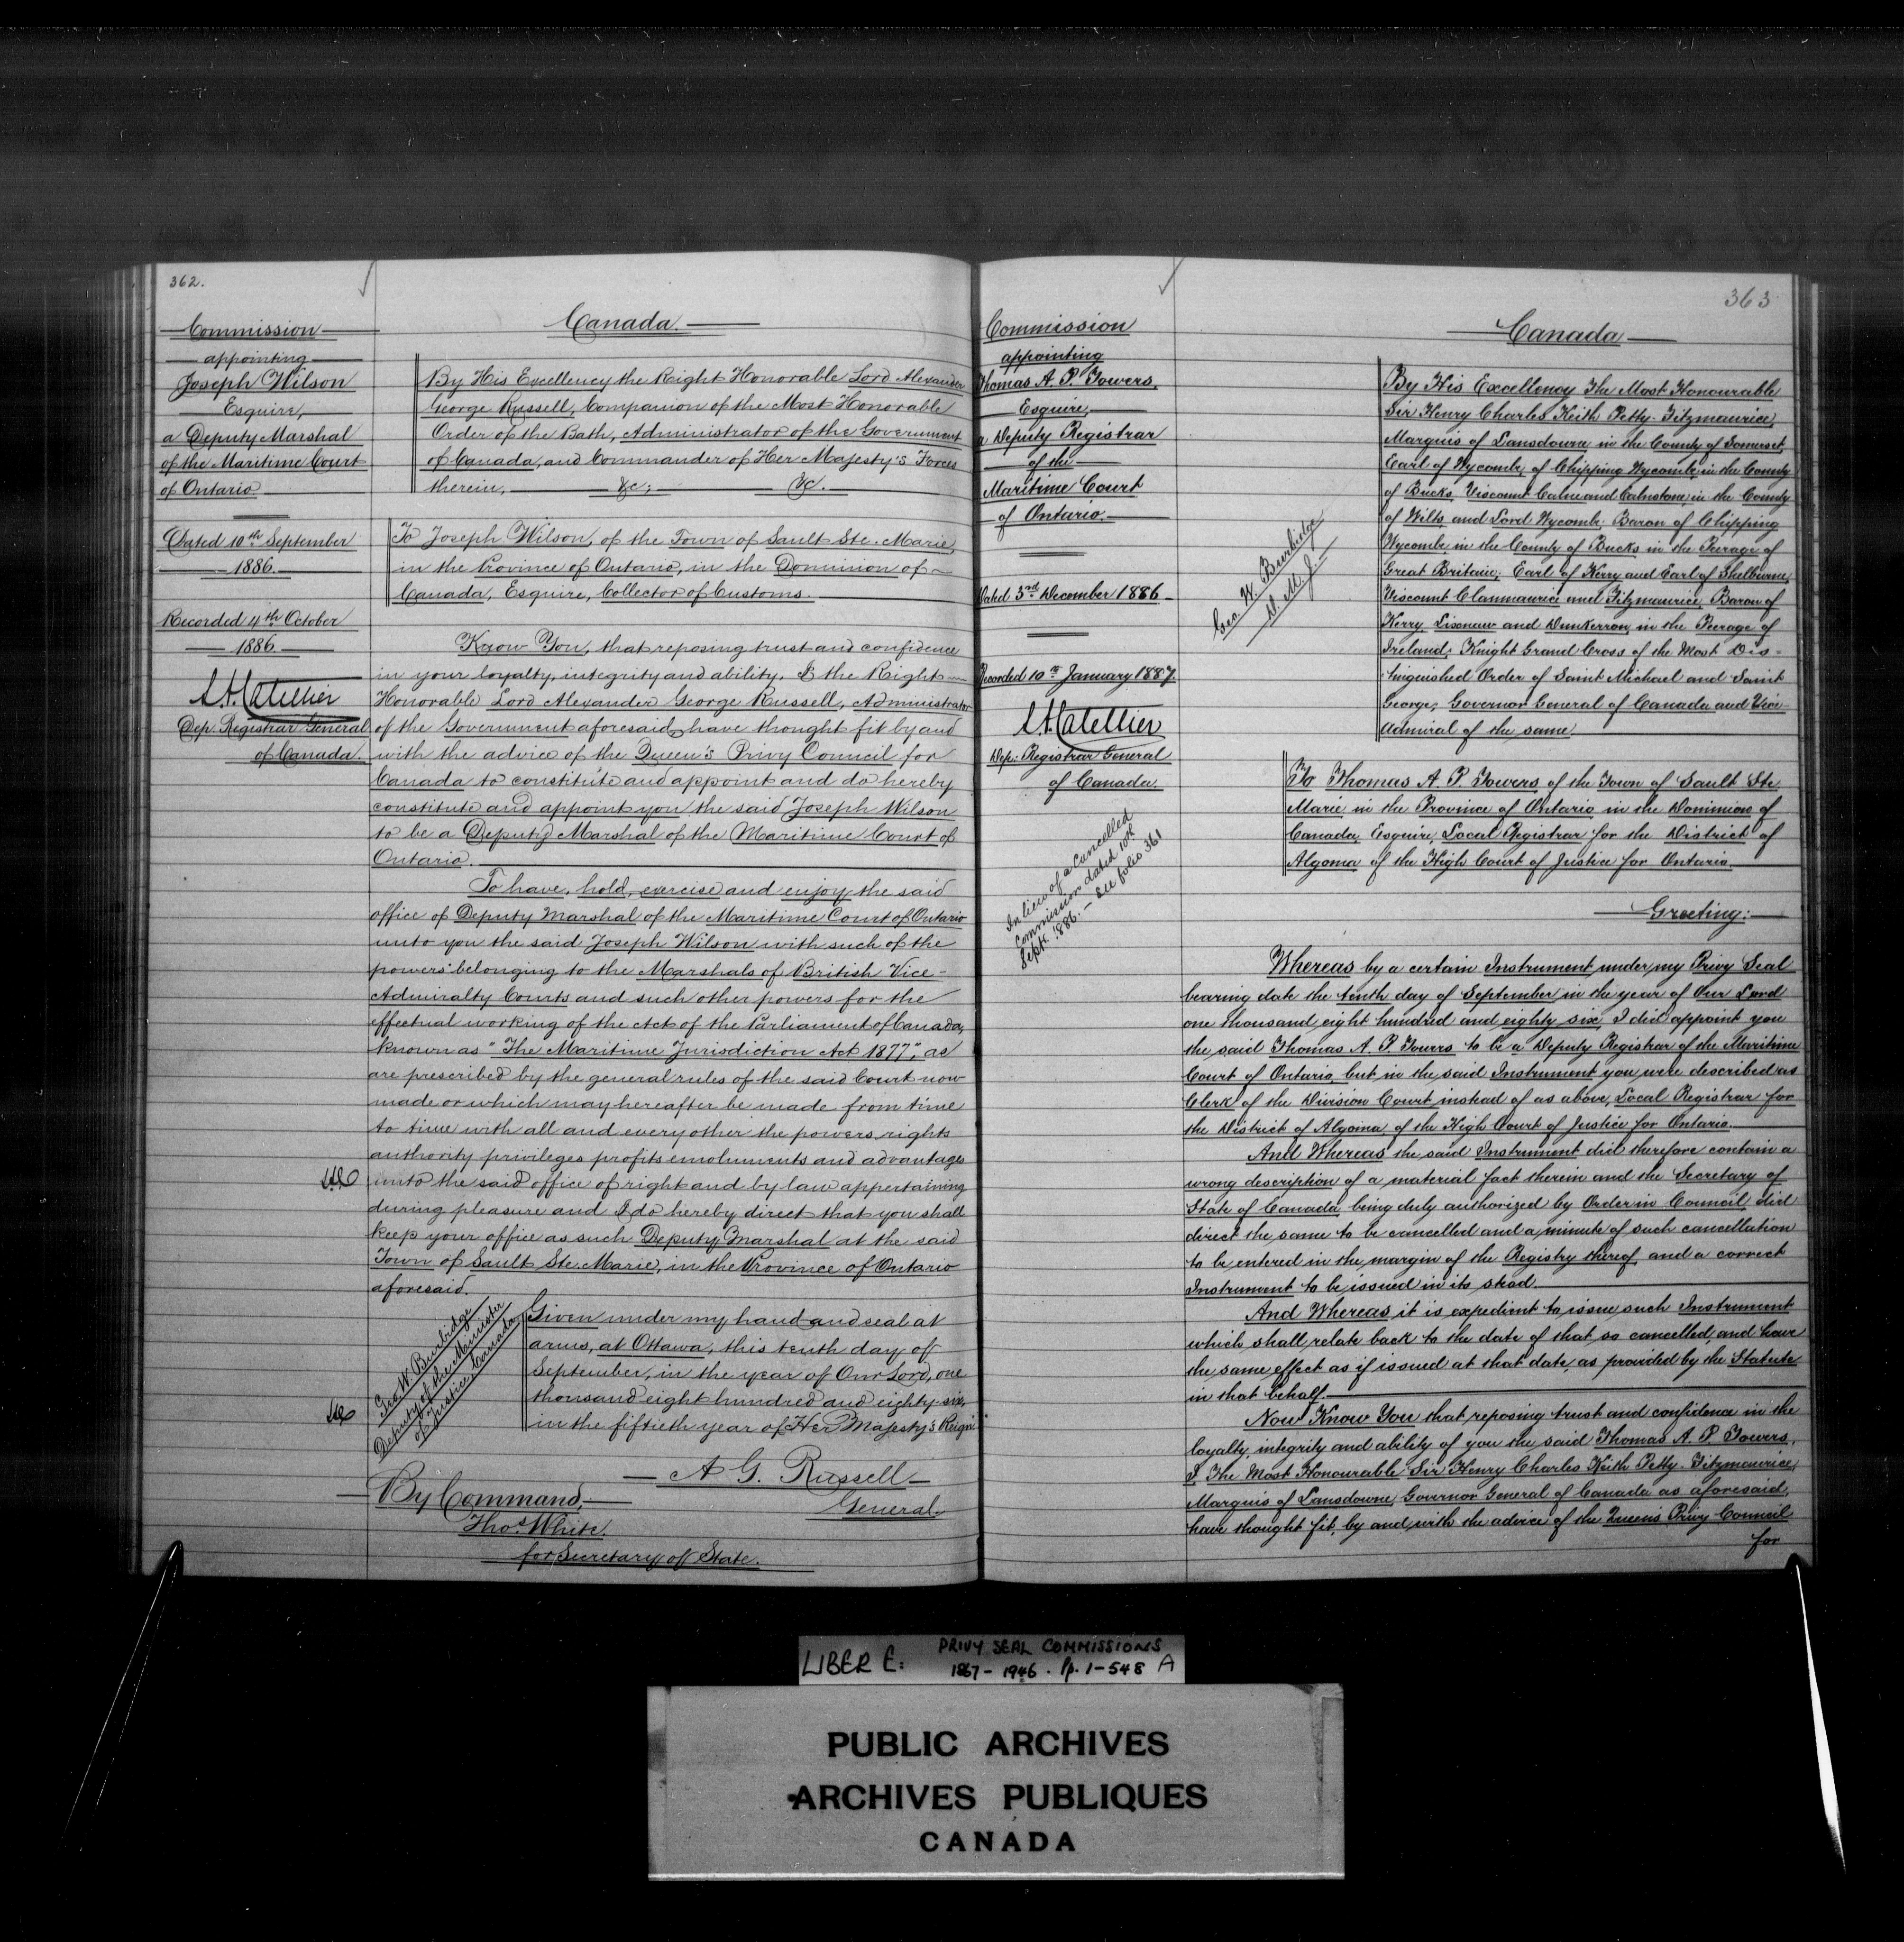 362.
Commission
appointing
Joseph Wilson
Esquire,
a Deputy Marshal
of the Maritime Court
of Ontario.
Dated 10th September
1886.
Recorded 4th October
1886.
L.A. Catellier
Dep. Registrar General
of Canada.
Canada.
By His Excellency the Right Honorable Lord Alexander
George Russell, Companion of the Most Honorable
Order of the Bath, Administrator of the Government
of Canada, and Commander of Her Majesty's Forces
therein, &c; &c.
To Joseph Wilson, of the Town of Sault Ste. Marie,
in the Province of Ontario, in the Dominion of
Canada, Esquire, Collector of Customs.
Know You, that reposing trust and confidence
in your loyalty, integrity and ability, I the Right
Honorable Lord Alexander George Russell, Administrator
of the Government aforesaid, have thought fit by and
with the advice of the Queen's Privy Council for
Canada to constitute and appoint and do hereby
constitute and appoint you the said Joseph Wilson
to be a Deputy Marshal of the Maritime Court of
Ontario.
To have, hold, exercise and enjoy the said
office of Deputy Marshal of the Maritime Court of Ontario
unto you the said Joseph Wilson with such of the
powers belonging to the Marshals of British Vice-
Admiralty Courts and such other powers for the
effectual working of the Act of the Parliament of Canada,
known as "The Maritime Jurisdiction Act 1877", as
are prescribed by the general rules of the said Court now
made or which may hereafter be made from time
to time with all and every other the powers rights
authority privileges profits emoluments and advantages
unto the said office of right and by law appertaining
during pleasure and I do hereby direct that you shall
keep your office as such Deputy Marshal at the said
Town of Sault Ste. Marie, in the Province of Ontario
aforesaid.
Geo. W. Burbidge
Deputy of the Minister
of Justice Canada
Given under my hand and seal at
arms, at Ottawa, this tenth day of
September, in the year of Our Lord, one
thousand eight hundred and eighty-six,
in the fiftieth year of Her Majesty's Reign.
A G. Russell
General.
By Command,
Thos. White.
for Secretary of State.
363
Commission
appointing
Thomas A. P. Towers,
Esquire,
a Deputy Registrar
of the
Maritime Court
of Ontario.
Dated 3rd December 1886
Recorded 10th January 1887.
L.A. Catellier
Dep: Registrar General
of Canada.
In lieu of a cancelled
Commission dated 10th
Sept. 1886. - See folio 361
Geo. W. Burbidge
D. M. J.
Canada
By His Excellency The Most Honourable
Sir Henry Charles Keith Petty-Fitzmaurice,
Marquis of Lansdowne in the County of Somerset,
Earl of Wycombe, of Chipping Wycombe, in the County
of Bucks, Viscount Calne and Calnstone in the County
of Wilts, and Lord Wycombe, Baron of Chipping
Wycombe, in the County of Bucks in the Peerage of
Great Britain; Earl of Kerry and Earl of Shelburne,
Viscount Clanmaurice and Fitzmaurice, Baron of
Kerry, Lixnaw and Dunkerron, in the Peerage of
Ireland; Knight Grand Cross of the Most Dis-
tinguished Order of Saint Michael and Saint
George; Governor General of Canada and Vice
Admiral of the same.
To Thomas A. P. Towers of the Town of Sault Ste
Marie, in the Province of Ontario in the Dominion of
Canada, Esquire, Local Registrar for the District of
Algoma of the High Court of Justice for Ontario.
Greeting:
Whereas by a certain Instrument under my Privy Seal
bearing date the tenth day of September in the year of Our Lord
one thousand eight hundred and eighty six, I did appoint you
the said Thomas A. P. Towers to be a Deputy Registrar of the Maritime
Court of Ontario, but in the said Instrument you were described as
Clerk of the Division Court instead of as above, Local Registrar for
the District of Algoma, of the High Court of Justice for Ontario.
And Whereas the said Instrument did therefore contain a
wrong description of a material fact therein and the Secretary of
State of Canada being duly authorized by Order in Council, did
direct the same to be cancelled and a minute of such cancellation
to be entered in the margin of the Registry thereof, and a correct
Instrument to be issued in its stead.
And Whereas it is expedient to issue such Instrument
which shall relate back to the date of that so cancelled, and have
the same effect as if issued at that date, as provided by the Statute
in that behalf.
Now Know You that reposing trust and confidence in the
loyalty, integrity and ability of you the said Thomas A. P. Towers,
I, The Most Honourable Sir Henry Charles Keith Petty-Fitzmaurice,
Marquis of Lansdowne, Governor General of Canada as aforesaid,
have thought fit, by and with the advice of the Queen's Privy Council
for
LIBER E: PRIVY SEAL COMMISSIONS
1867-1946. Pp. 1-548 A
PUBLIC ARCHIVES
ARCHIVES PUBLIQUES
CANADA